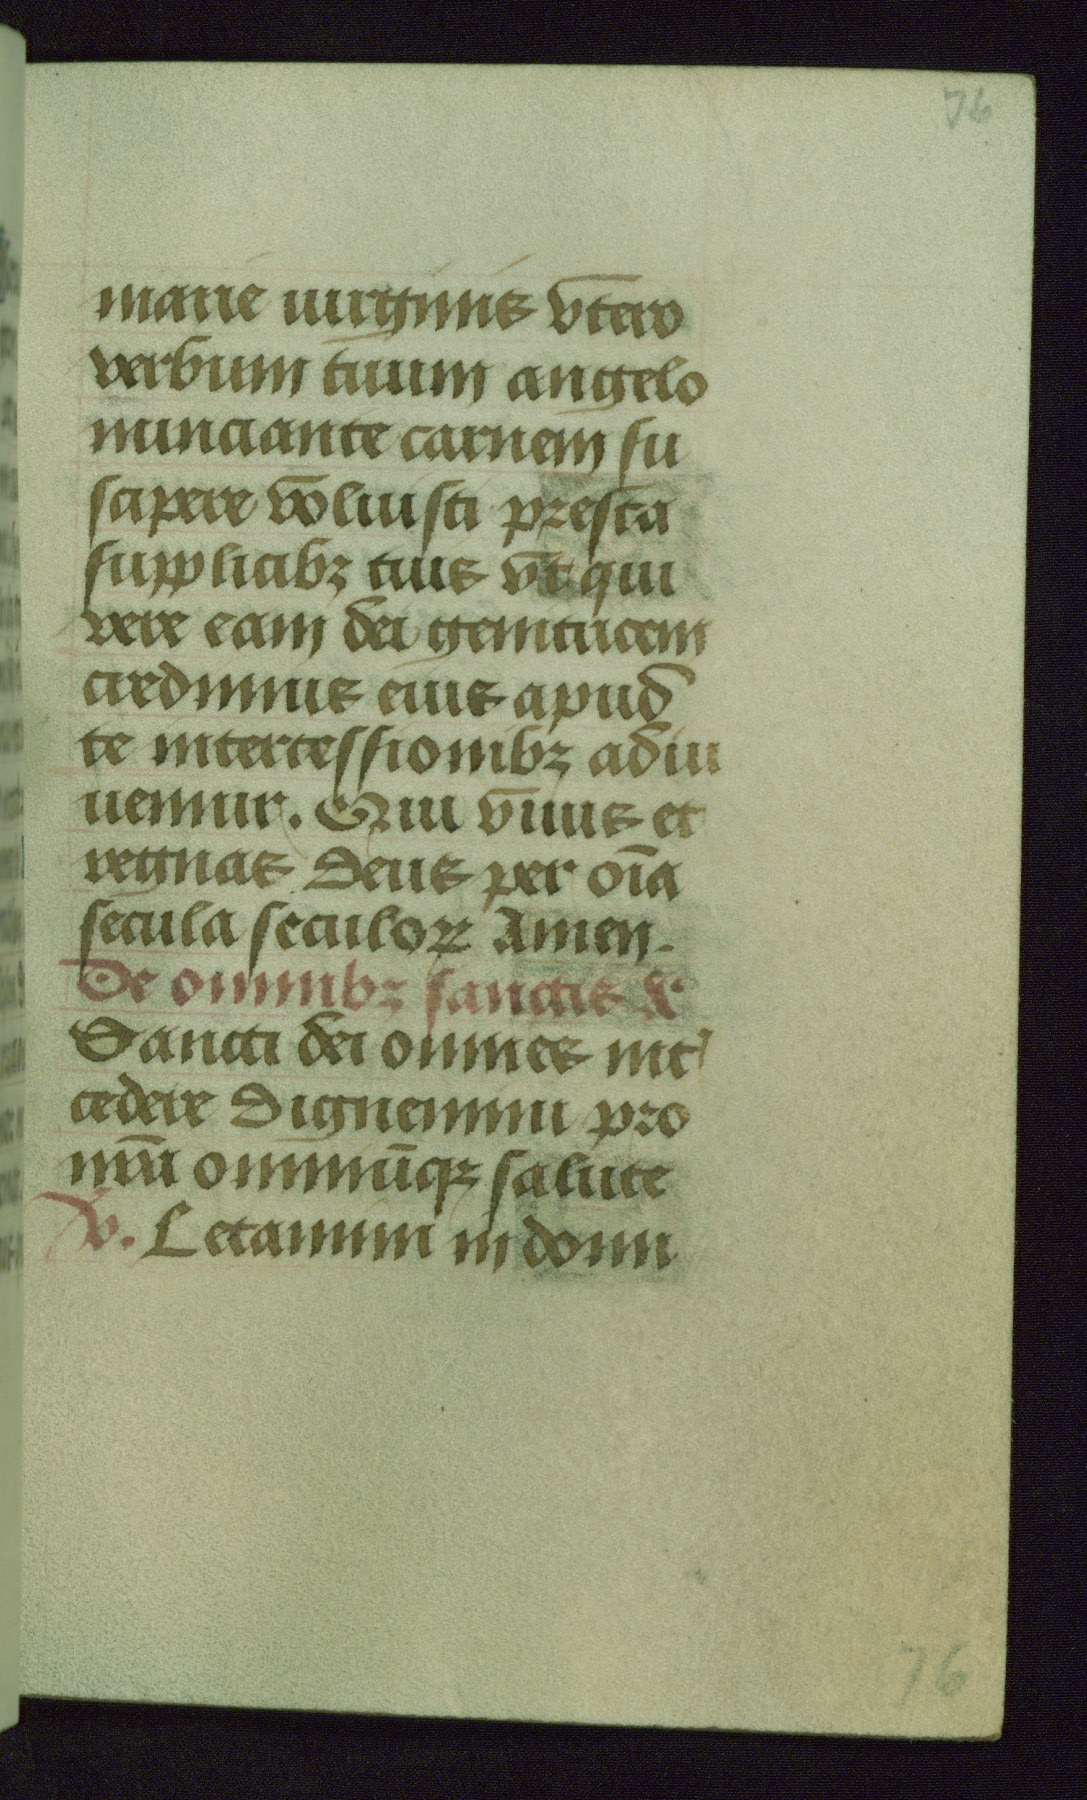 76
marie uirginis vtero
verbum tuum angelo
nunciante carnem su
scipere voluisti presta
supplicibꝫ tuis vt qui
vere eam dei genitricem
credimus eius apud
te intercessionibꝫ adiu
uemur. Qui viuis et
regnas Deus per oīa
secula seculoꝝ Amen.
De omnibꝫ sanctis
Sancti dei omnes int̉
cedere Dignemini pro
nr̄a omniūqꝫ salute
v. Letamini in domi
76